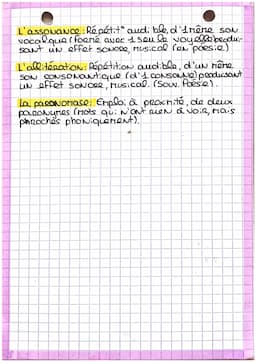 L'assonance: Répétit° audible, d'1 même son
vocalique (formé avec 1 seule voyelle) produi-
sant un effet sonore, musical (en poésie)
L'allitération: Répétition audible, d'un même
son consonantique (d'1 consonne) produisant
un effet sonore, musical. (souv. Poésie).
La paronomase: Emploi à proximité, de deux
paronymes (mots qui n'ont rien à voir, mais
proches phoniquement).